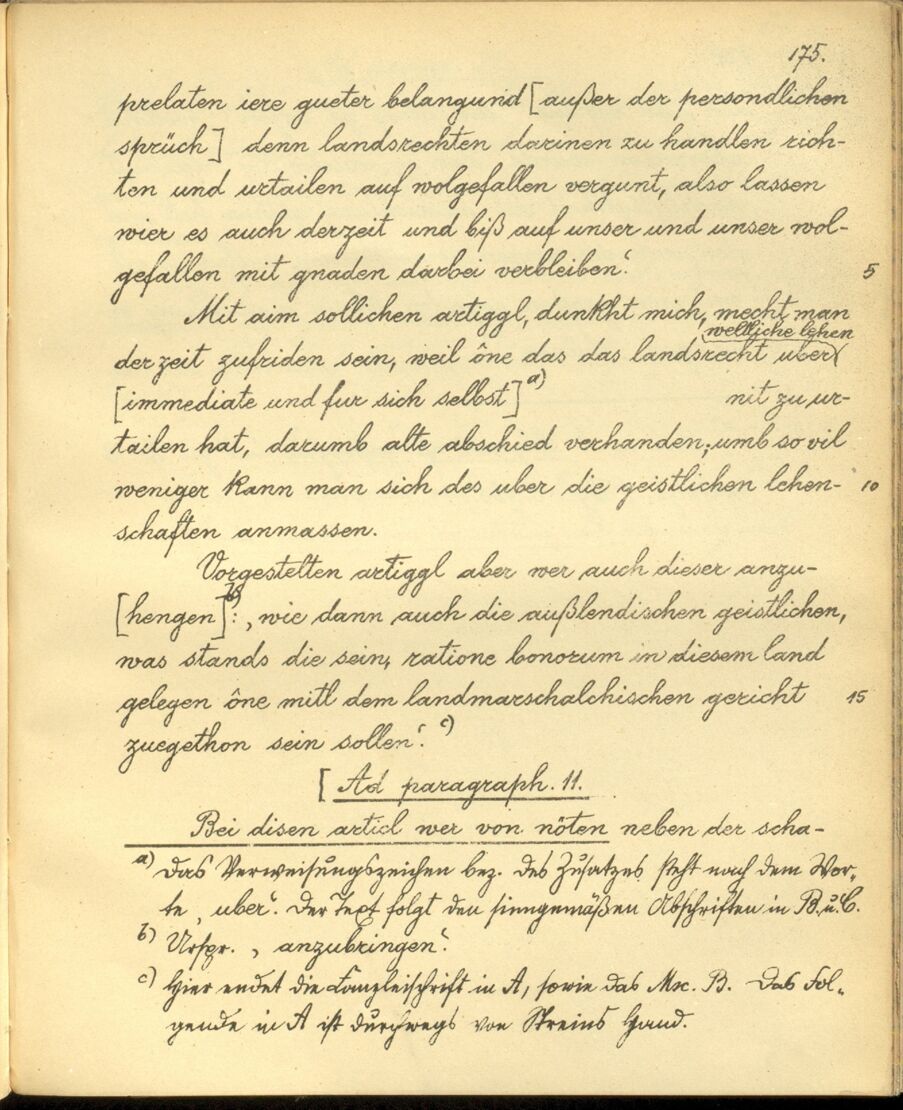 175.
prelaten iere gueter belangund [außer der persondlichen
sprüch] denn landsrechten darinen zu handlen rich-
ten und urtailen auf wolgefallen vergunt, also lassen
wier es auch derzeit und biß auf unser und unser wol-
gefallen mit gnaden darbei verbleiben‘.
5
Mit aim sollichen artiggl, dunkht mich, mecht man
weltliche lehen
derzeit zufriden sein, weil ône das das landsrecht uber
[immediate und fur sich selbst] a) nit zu ur-
tailen hat, darumb alte abschied verhanden; umb so vil
weniger kann man sich des uber die geistlichen lehen-
10
schaften anmassen.
Vorgestelten artiggl aber wer auch dieser anzu-
[hengen] b): ‚wie dann auch die außlendischen geistlichen,
was stands die sein, ratione bonorum in diesem land
gelegen ône mitl dem landmarschalchischen gericht
15
zuegethon sein sollen‘. c)
[Ad paragraph. 11.
Bei disen articl wer von nöten neben der scha-
a) Das Verweisungszeichen bez. des Zusatzes steht nach dem Wor-
te ‚uber‘. Der Text folgt den sinngemäßen Abschriften in B. u. C.
b) Urspr. ‚anzubringen‘.
c) Hier endet die Kanzleischrift in A, sowie das Mx. B. Das Fol-
gende in A ist durchwegs von Streins Hand.